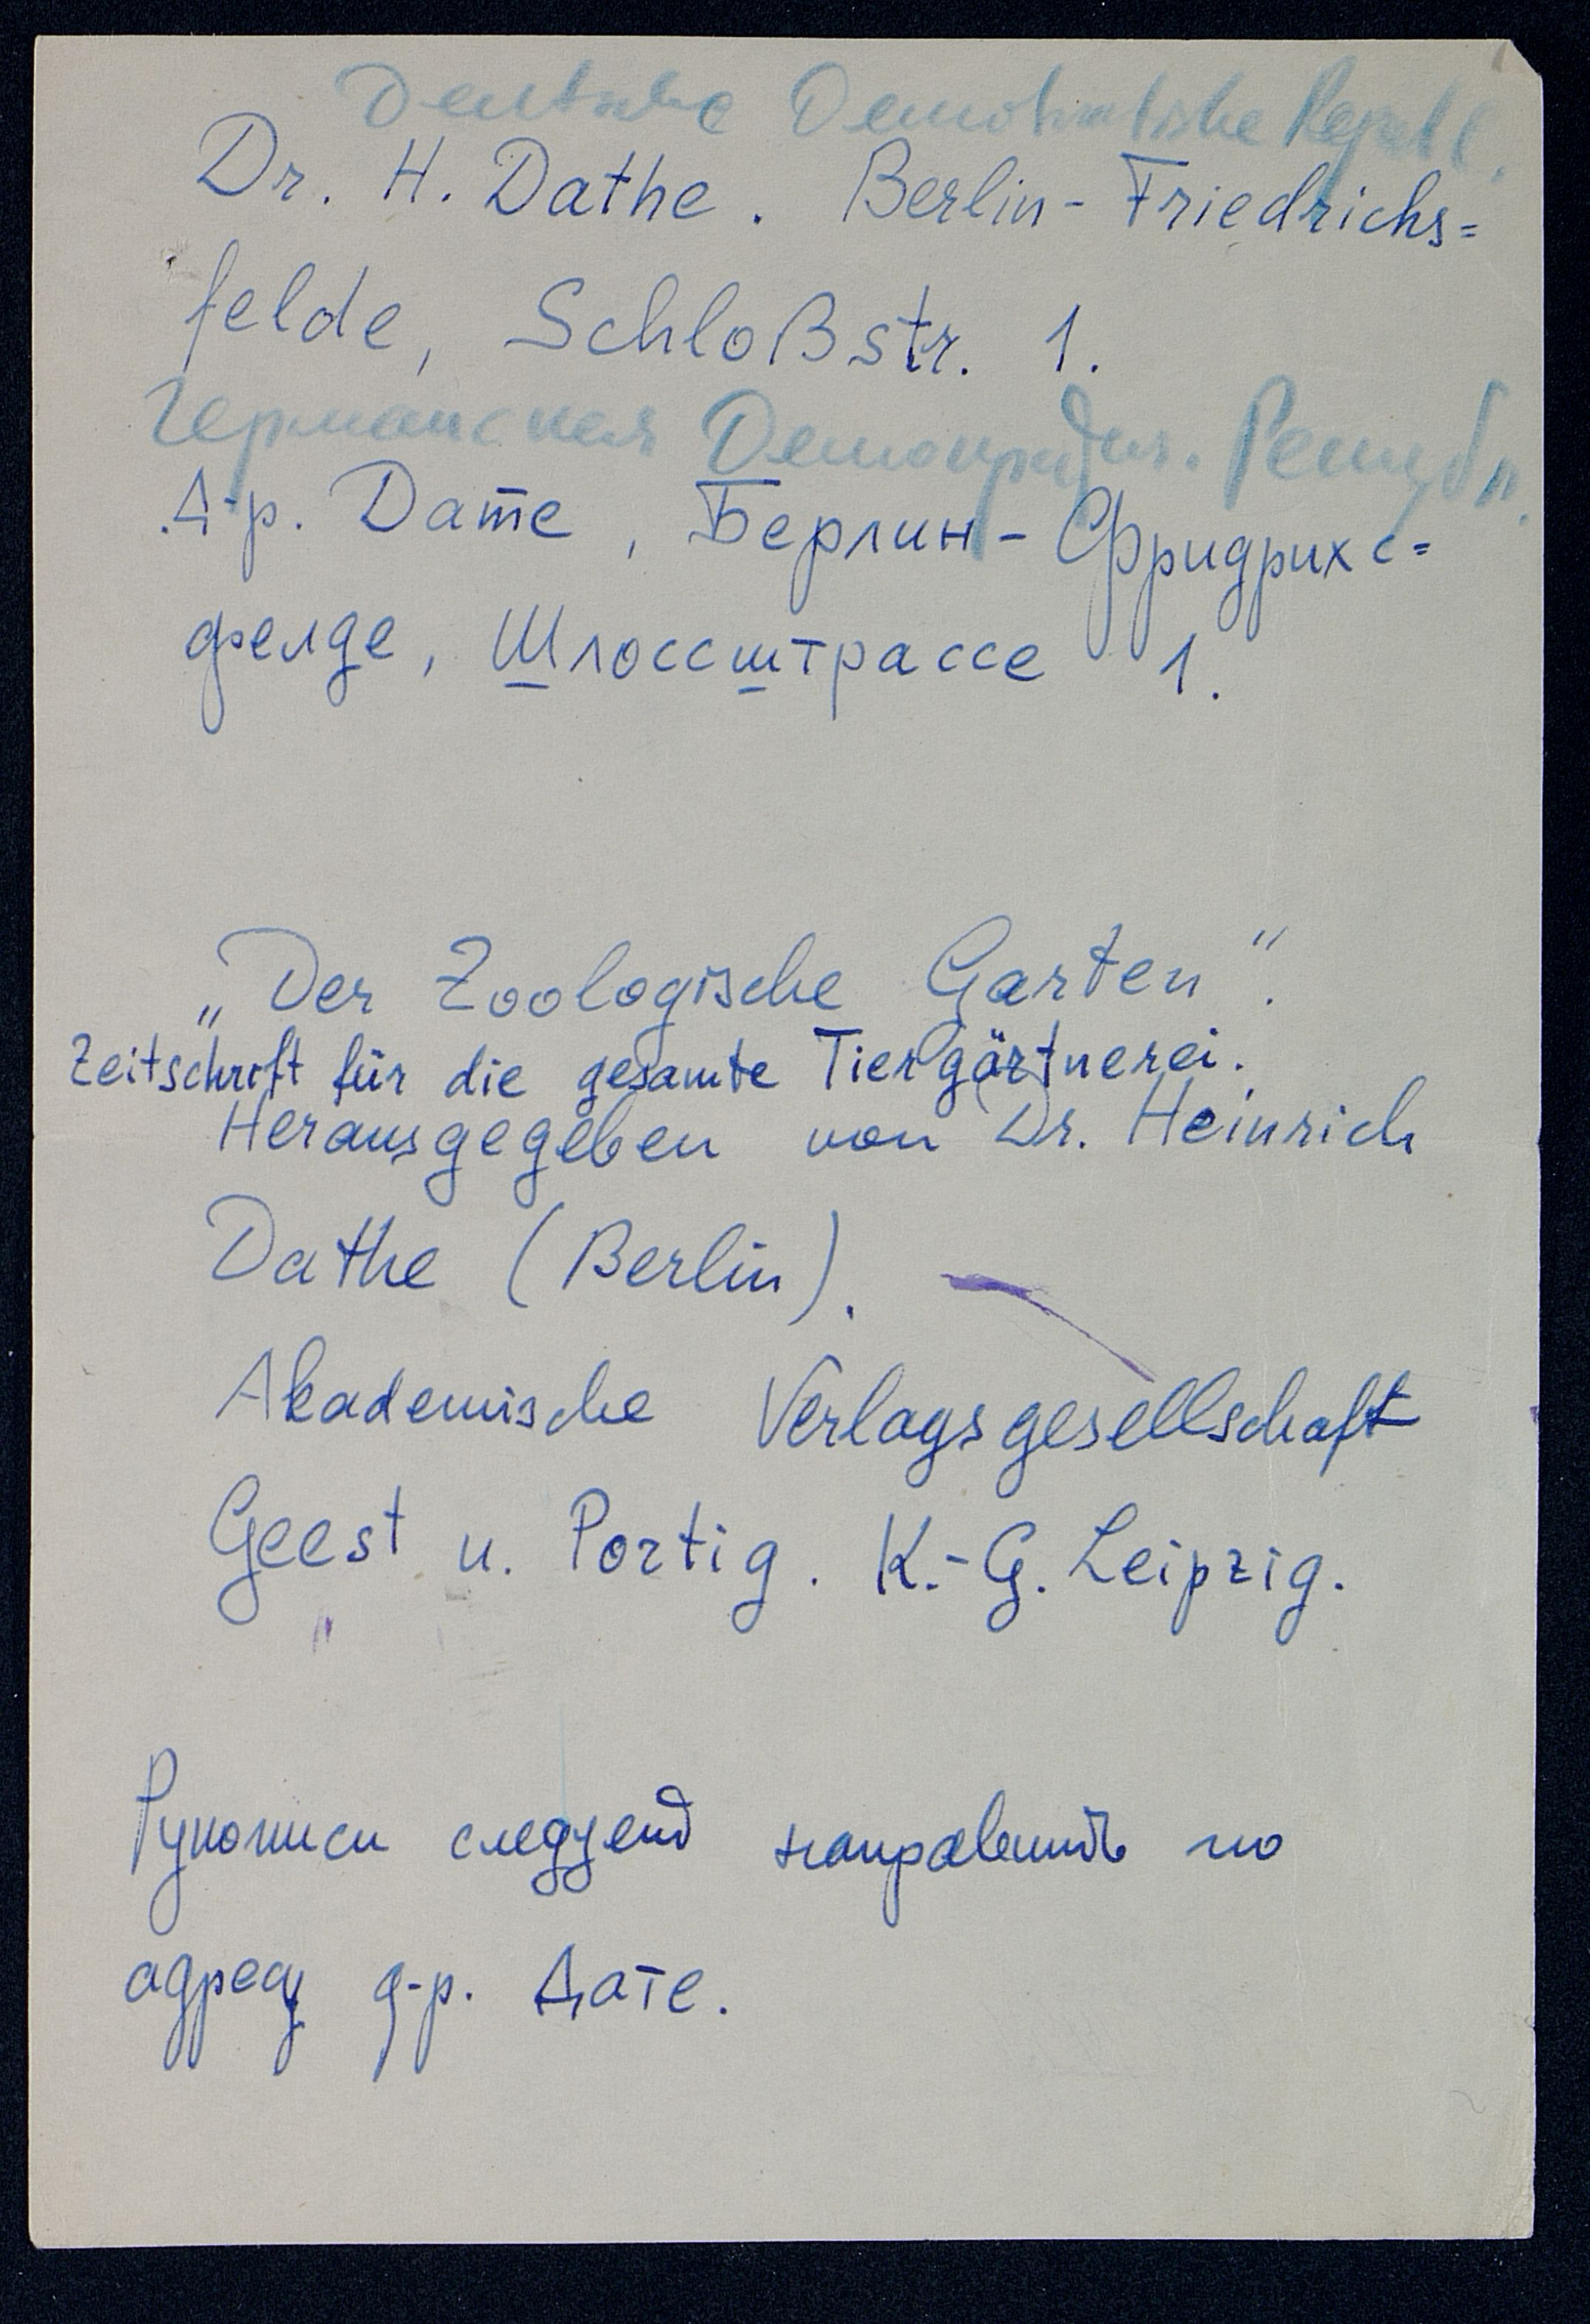 Deutsche Demokratische Republ.
Dr. H. Dathe. Berlin-Friedrichs=
felde, Schloßstr. 1.
Германская Демократич. Республ.
Д-р. Дате, Берлин-Фридрихс=
фелде, Шлоссштрассе 1.
„Der Zoologische Garten“.
Zeitschrift für die gesamte Tiergärtnerei.
Herausgegeben von Dr. Heinrich
Dathe (Berlin).
Akademische Verlagsgesellschaft
Geest u. Portig. K.-G. Leipzig.
Рукописи следует направить по
адресу д-р. Дате.